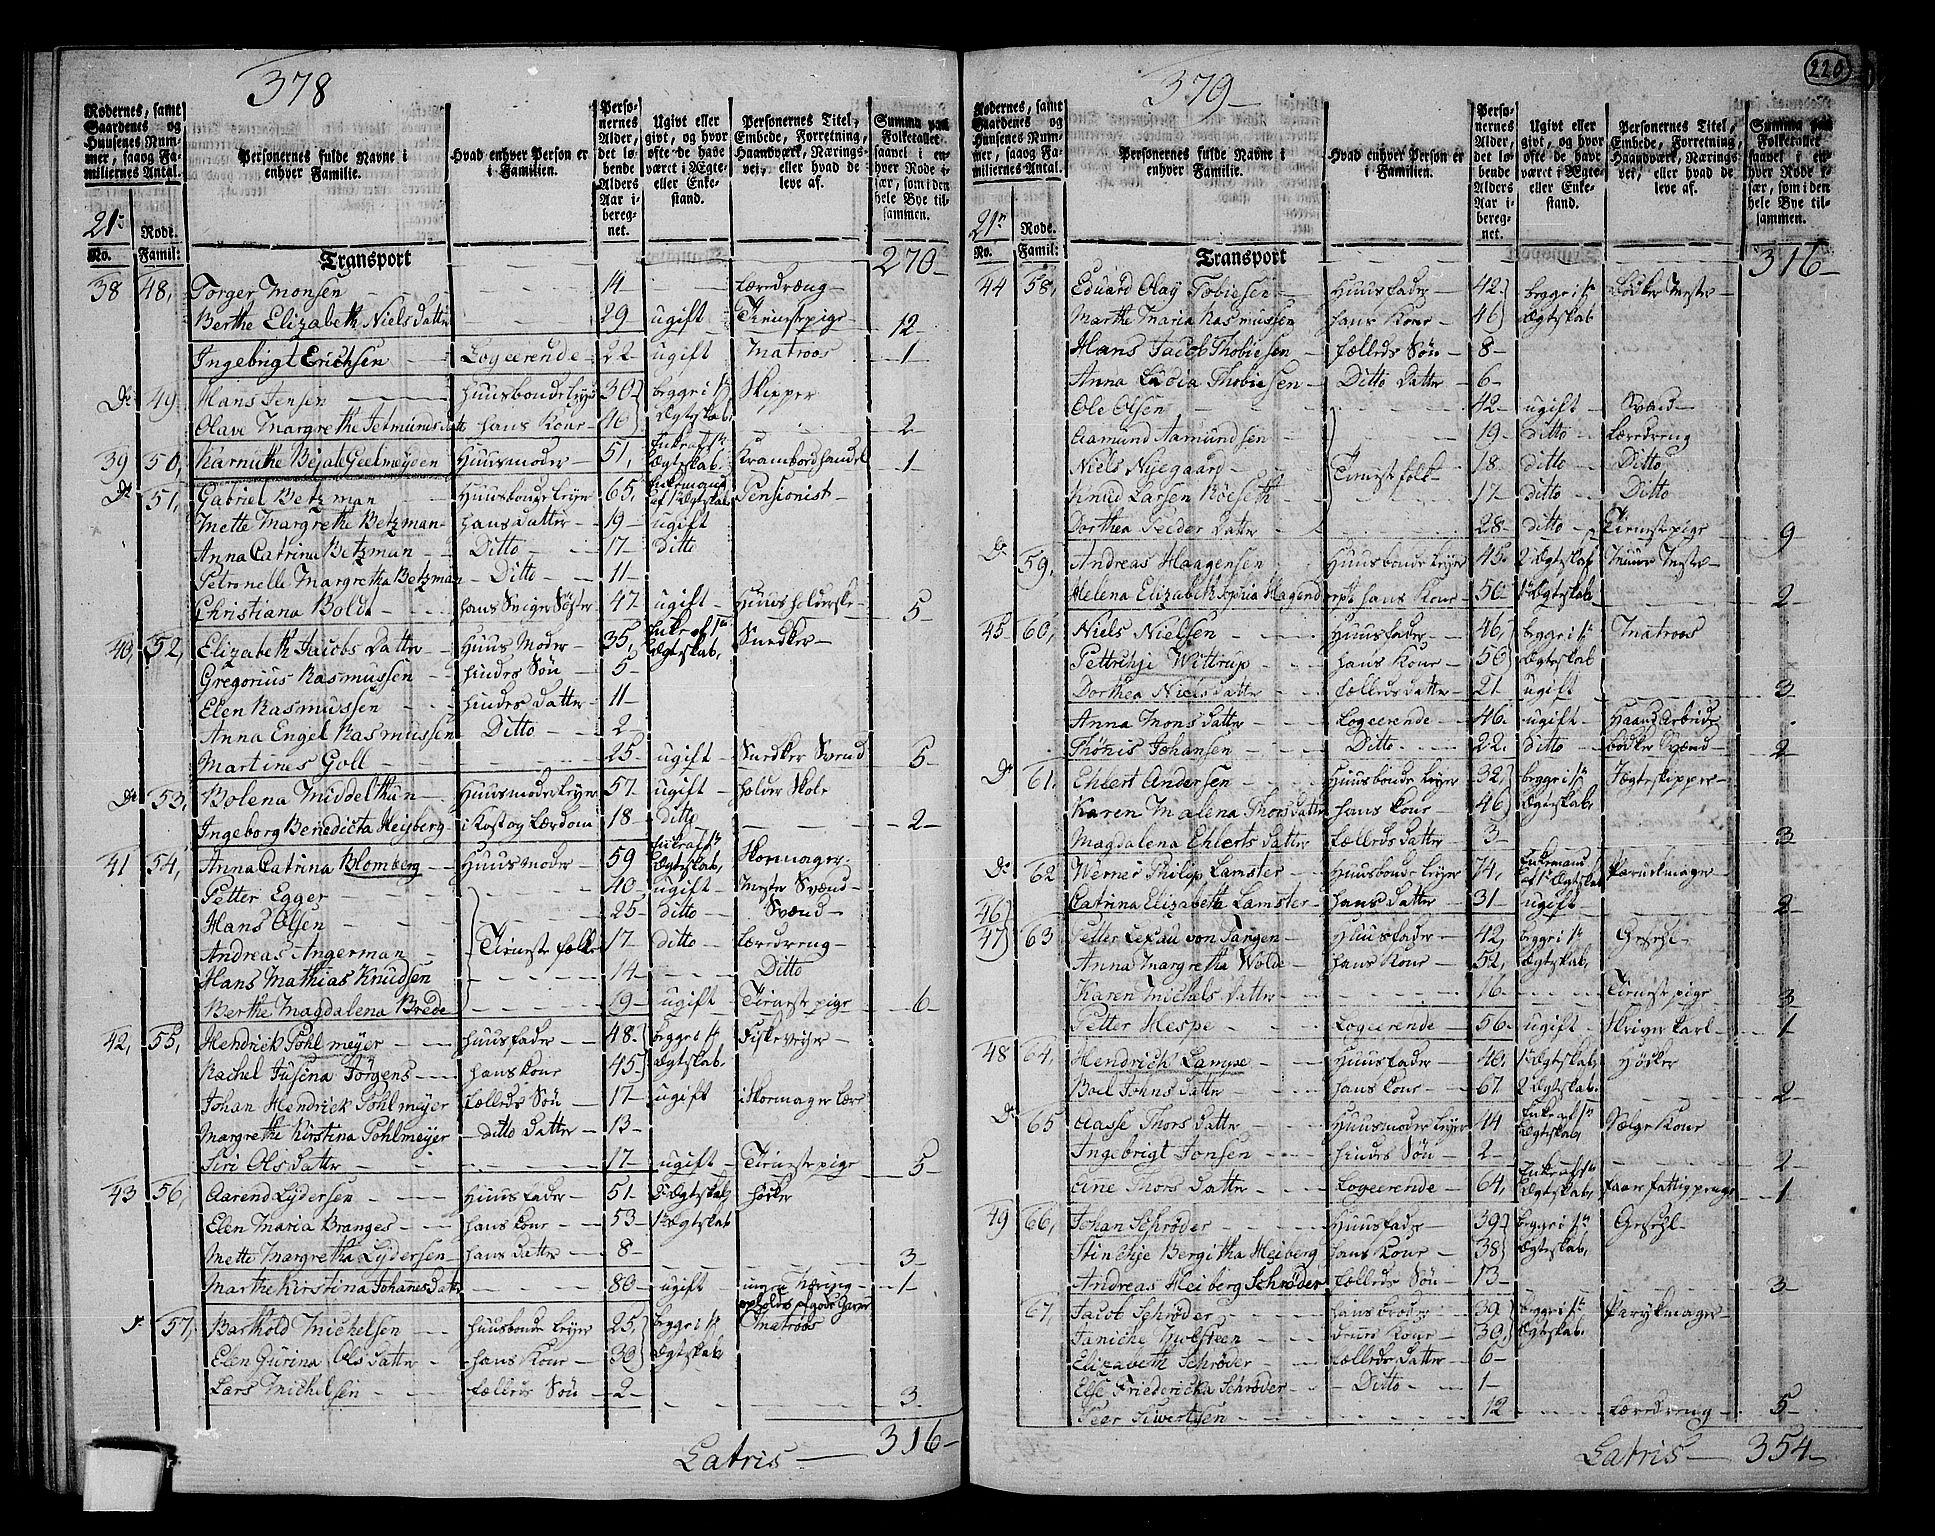 378
Rodernes, samt Gaardenes og Huusenes Nummer, saavog Familiernes Antal.
Personernes fulde Navne i enhver Familie.
Hvad enhver Person er i Familien.
Personernes Alder, det løbende Alders Aar iberegnet.
Ugivt eller givt, og hvor ofte de have været i Ægte- eller Enkestand.
Personernes Titel, Embede, Forretning, Haandværk, Næringsvei, eller hvad de leve af.
Summa paa Folketallet saavel i enhver Rode især, som i den hele Bye tilsammen.
21 Rode.
No. Famil:
Transport 270
38 48, Torger Monsen 14 Læredræng
Berthe Elizabeth Niels datter 29 ugift Tienestepige 12
Ingebrigt Erichsen Logeerende 22 ugift Matroos 1
Do 49 Hans Jensen Huusbonde Leyer 30 begge i 1te Skipper
Olave Margrethe Jetmunds dat hans Kone 46 Ægteskab 2
39 50, Karnuthe Bejate Geelmøyden Huusmoder 51, Enke af 1te Ægteskab Krambordhandel 1
Do 51, Gabriel Betzman Huusbonde Leyer 65 Enkemand af 1 Ægteskab Pensionist
Mette Margrethe Betzman hans datter 19 ugift
Anna Catrina Betzman Ditto 17 ditto
Petronelle Margretha Betzman Ditto 11
Christiana Boldt hans Sviger Søster 47 ugift Huusholderske 5
40, 52, Elizabeth Jacobs datter Huus Moder 35, Enke af 1te Ægteskab, Snedker
Gregorius Rasmussen hindes Søn 5
Elen Rasmussen hindes datter 11
Anna Engel Rasmussen Ditto 2
Martines Goll 25 ugift Snedker Svend 5
Do 53, Bolena Middelthun Huusmoder Leyer 57 ugift holder Skole
Ingeborg Benedicta Heyberg i Kost og Lærdom 18 ditto 2
41 54, Anna Catrina Blomberg Huusmoder 59 Enke af 1te Ægteskab, Skomager
Petter Egger 40 ugift Mester Svænd
Hans Olsen 25 ditto Svænd
Andreas Angerman Tieneste folk 17 ditto Læredreng
Hans Mathias Knudsen 14 Ditto
Berthe Magdalena Brede 19 ugift Tieneste pige 6
42, 55, Hendrick Pohlmeyer huusfader 48 begge i 1te Fiskevejer
Rachel Jusina Jørgens hans Kone 45 Ægteskab.
Johan Hendrick Pohlmeyer fælleds Søn 17 ugift i Skomager Lære
Margrethe Kirstina Pohlmeyer ditto datter 13
Siri Ols datter 17 ugift Tieneste pige 5
43 56, Aarend Lydersen Huusfader 51 Ægteskab høker
Elen Maria Branges hans Kone 53 1te Ægteskab
Mette Margretha Lydersen hans datter 8 3
Marthe Kirstina Johanes datt 80 ugift 1
57, Barthold Michelsen Huusbonde Leyer 25, begge i 1te Matroos
Elen Gurina Ols datter hans Kone 30 Ægteskab
Lars Michelsen fælleds Søn 2 3
Latris 316
379
220
Rodernes, samt Gaardenes og Huusenes Nummer, saavog Familiernes Antal.
Personernes fulde Navne i enhver Familie.
Hvad enhver Person er i Familien.
Personernes Alder, det løbende Alders Aar iberegnet.
Ugivt eller givt, og hvor ofte de have været i Ægte- eller Enkestand.
Personernes Titel, Embede, Forretning, Haandværk, Næringsvei, eller hvad de leve af.
Summa paa Folketallet saavel i enhver Rode især, som i den hele Bye tilsammen.
21 Rode.
No. Famil:
Transport 316
44 58, Eduard Olay Tobiesen Huusfader 42 begge i 1te Bødker Mester
Marthe Maria Rasmussen hans Kone 46 Ægteskab
Hans Jacob Thobiesen fælleds Søn 8
Anna Lūdia Thobiesen Ditto datter 6
Ole Olsen 42 ugift Svænd
Aamund Aamundsen 19 ditto Læredreng
Niels Nyegaard Tienestefolk 18 ditto Ditto
Knud Larsen Røeseth 17 ditto Ditto
Dorthea Peider datter 28 ditto Tieneste pige 9
Do 59, Andreas Haagensen Huusbonde Leyer 45 2 Ægteskab Muur Mester
Helena Elizabeth Sophia Hagend hans Kone 50 1te Ægteskab 2
45 60, Niels Nielsen Huusfader 46, begge i 1te Matroos
Pettrihje Wittrup hans Kone 50 Ægteskab
Dorthea Niels datter fælleds datter 21 ugift 3
Anna Mons datter Logeerende 46 ugift Haand Arbeide
Thönis Johansen Ditto 22 ditto Bødker Svænd 2
Do 61, Ehlert Andersen Huusbonde Leyer 32 begge i 1te Jægteskipper
Karen Malena Thors datter hans Kone 46 Ægteskab,
Magdalena Ehlerts datter fælleds datter 3 3
Do 62 Werner Philip Lamster Huusbonde Leyer 74, Enkemand af 1te Ægteskab Parūckmager
Catrina Elizabetha Lamster hans datter 31 ugift 2
46
47 63 Petter Lexau von Tangen Huusfader 42, begge i 1te
Anna Margretha Wolde hans Kone 52, Ægteskab,
Karen Michels datter 16 Tieneste pige 3
Petter Hespe Logeerende 56 ugift Skriver Karl 1
48 64, Hendrick Lampe Huusfader 40 1te Ægteskab, Høcker
Boel Johns datter hans Kone 67 2 Ægteskab 2
Do 65 Aasse Thors datter Huusmoder Leyer 44 Enke af 1te Ægteskab, Sælge Kone
Ingebrigt Jonsen hendes Søn 2 2
Ane Thors datter Logeerende 64, Enke af 1te Ægteskab, faar fattigpenge 1
49 66, Johan Schrøder Huusfader 39 begge i 1te
Stinchje Bergitha Heiberg hans Kone 38 Ægteskab,
Andreas Heiberg Schrøder fælleds Søn 13 3
67, Jacob Schrøder hans broder 39 begge i 1te Parykmager
Janiche Holsteen dennes Kone 30 Ægteskab
Elizabeth Schrøder fælleds datter 6
Else Friedericka Schrøder Ditto 1
Peer Siwertsen 12 Læredreng 5
Latris 354